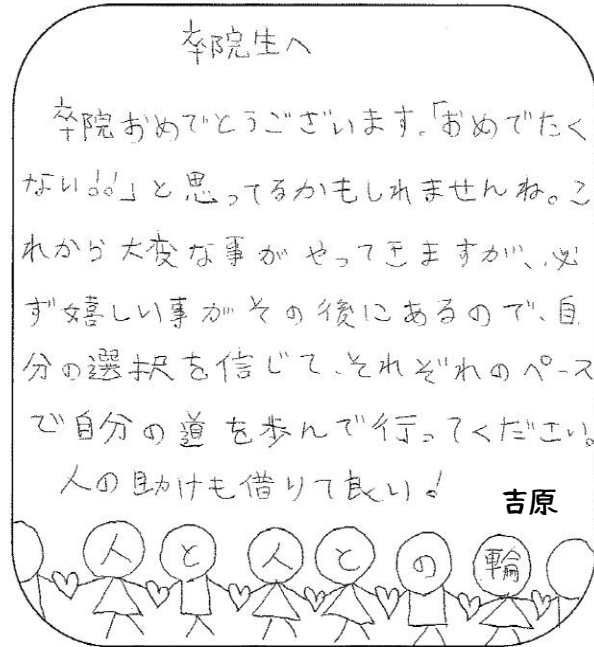 卒院生へ
卒院おめでとうございます。「おめでたく
ない!!」と思ってるかもしれませんね。こ
れから大変な事がやってきますが、必
ず嬉しい事がその後にあるので、自
分の選択を信じて、それぞれのペース
で自分の道を歩んで行ってください。
人の助けも借りて良い!
吉原
人と人との輪